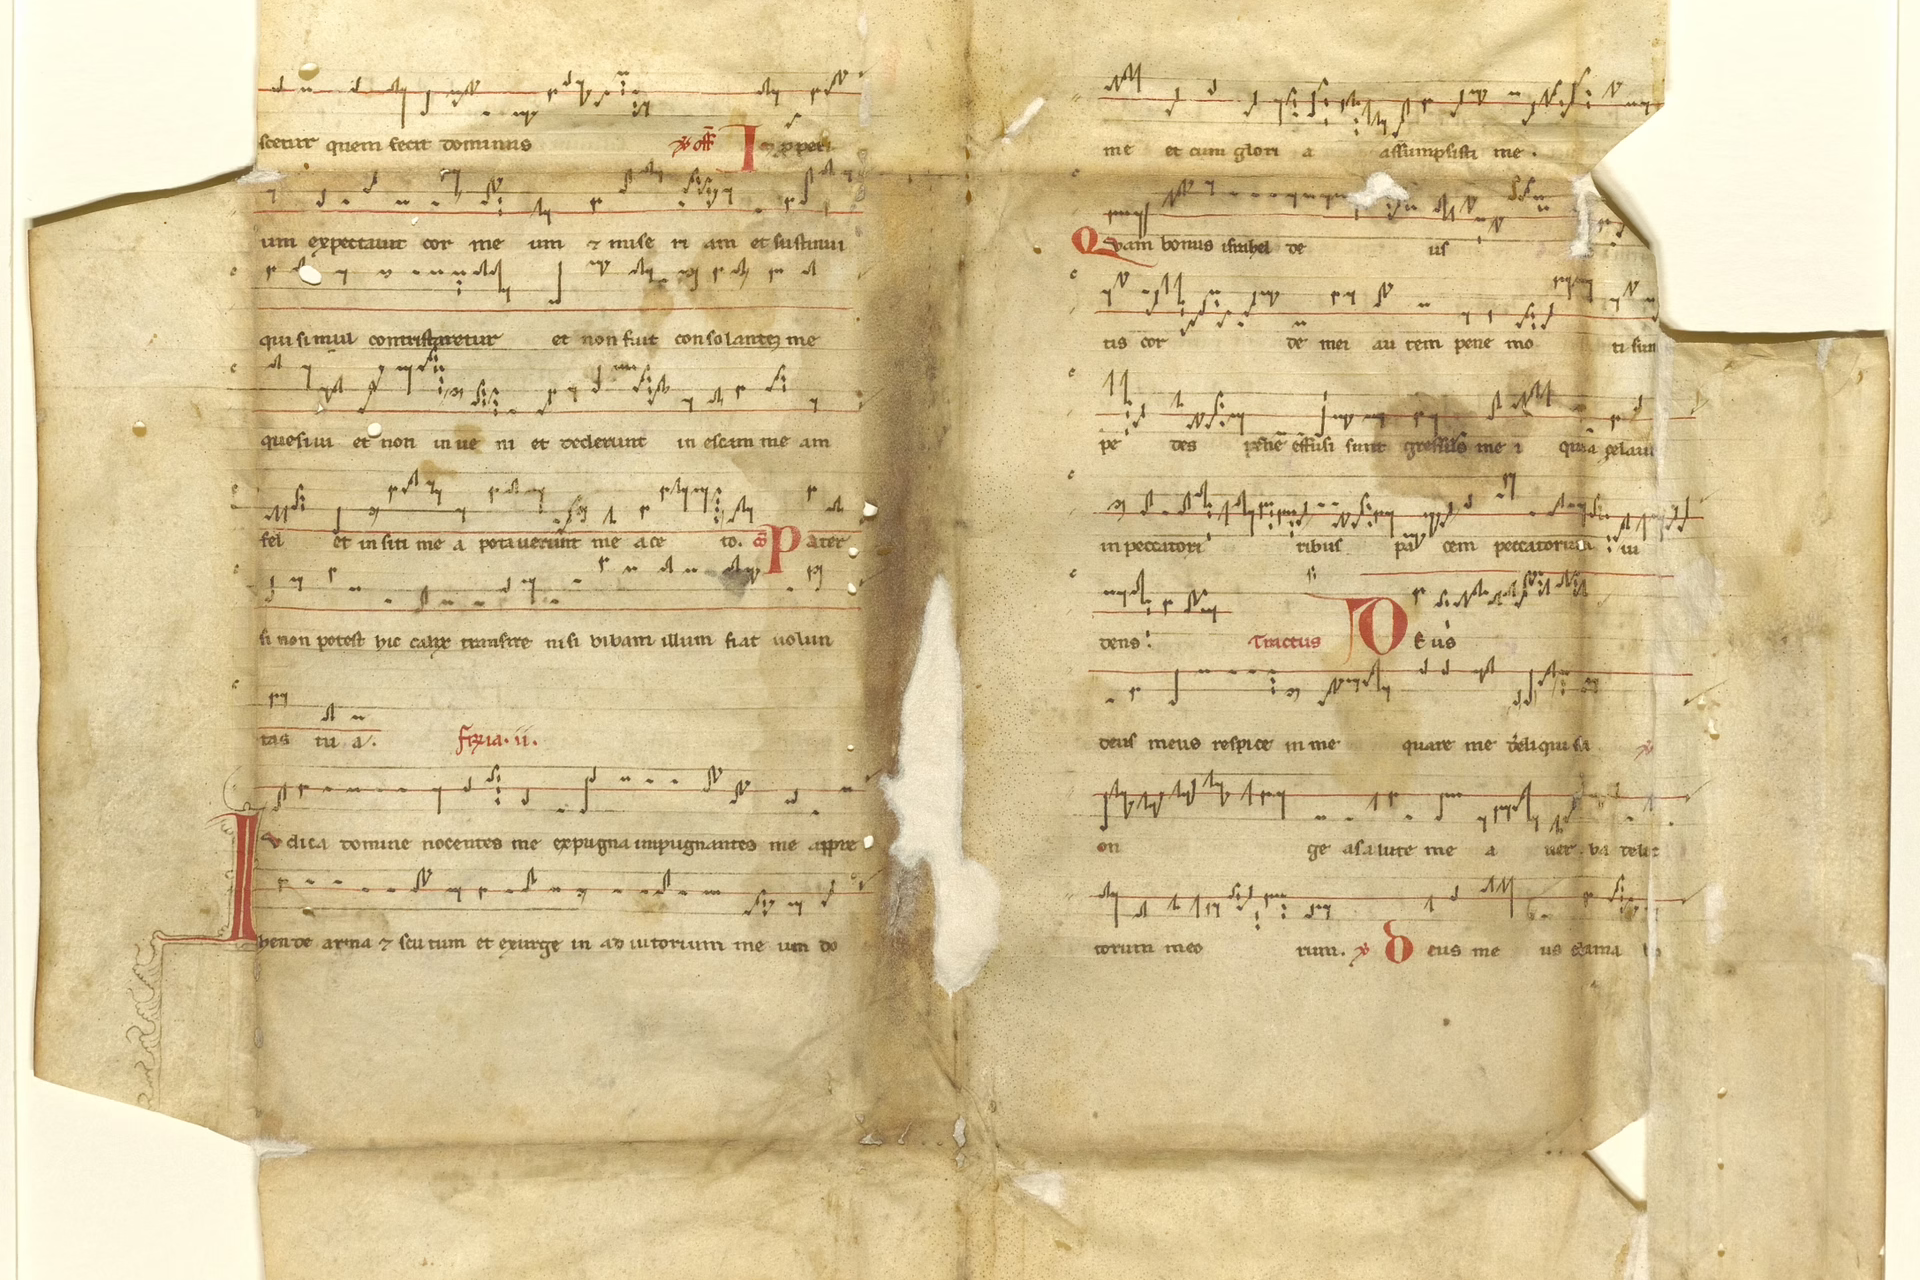 scetur quem fecit dominus off Inpperi
um expectauit cor me um ⁊ mise ri am et sustinui
qui simul contristaretur et non fuit consolantem me
quesiui et non in ue ni et dederunt in escam me am
fel et in siti me a potauerunt me ace to. cō Pater
si non potest hic calix transire nisi bibam illum fiat uolun
tas tu a. Feria. ii.
Iudica domine nocentes me expugna inpugnantes me appre
hende arma ⁊ scu tum et exurge in ad iutorium me um do
me et cum glori a assumpsisti me.
Quam bonus israhel de us
tis cor de mei au tem pene mo ti sun
pe des pene effusi sunt gressus me i quia zelaui
in peccatori ribus pa cem peccatorum ui
dens. Tractus Deus
deus meus respice in me quare me dereliqui sti
on ge a salute me a uer ba delic
torum meo rum. Deus me us clama bo